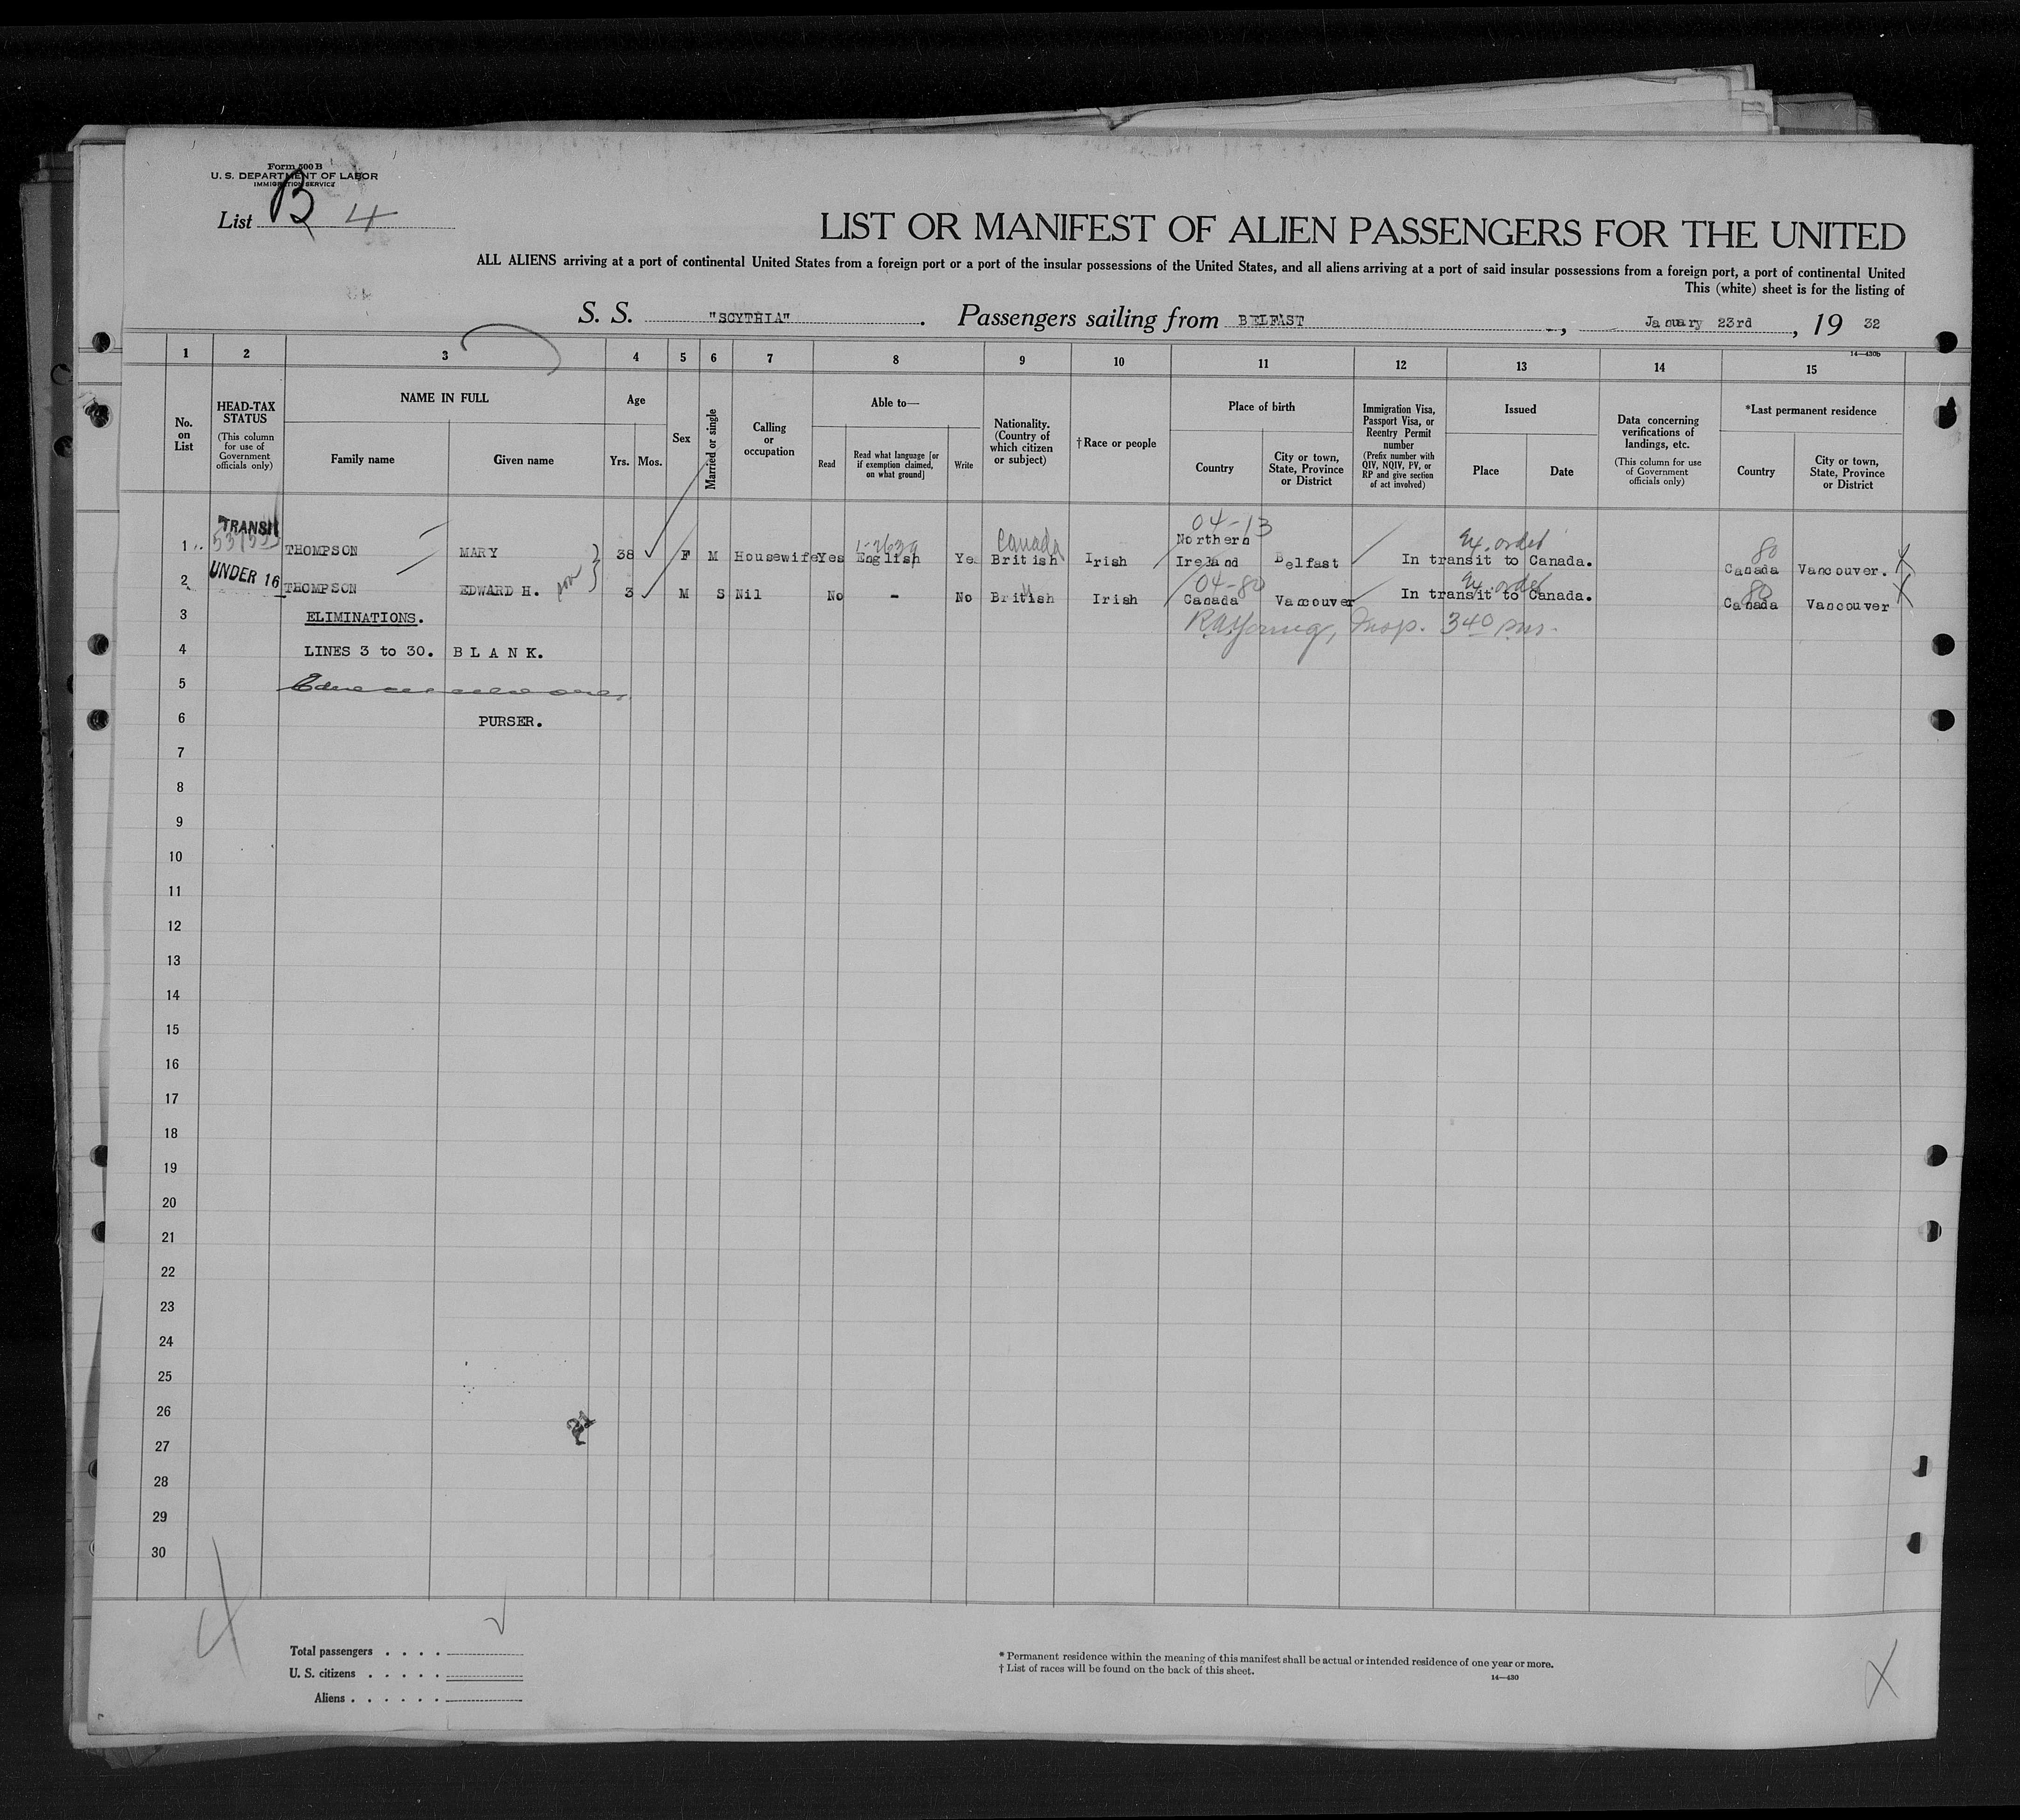 Form 500 B
U. S. DEPARTMENT OF LABOR
IMMIGRATION SERVICE
List B 4
LIST OR MANIFEST OF ALIEN PASSENGERS FOR THE UNITED
ALL ALIENS arriving at a port of continental United States from a foreign port or a port of the insular possessions of the United States, and all aliens arriving at a port of said insular possessions from a foreign port, a port of continental United
This (white) sheet is for the listing of
S. S. "SCYTHIA". Passengers sailing from BELFAST, January 23rd, 19 32
14—430b
1 2 3 4 5 6 7 8 9 10 11 12 13 14 15
No. on List
HEAD-TAX STATUS
(This column for use of Government officials only)
NAME IN FULL
Family name
Given name
Age
Yrs. Mos.
Sex
Married or single
Calling or occupation
Able to—
Read
Read what language [or if exemption claimed, on what ground]
Write
Nationality. (Country of which citizen or subject)
†Race or people
Place of birth
Country
City or town, State, Province or District
Immigration Visa, Passport Visa, or Reentry Permit number
(Prefix number with QIV, NQIV, PV, or RP and give section of act involved)
Issued
Place
Date
Data concerning verifications of landings, etc.
(This column for use of Government officials only)
*Last permanent residence
Country
City or town, State, Province or District
TRANSIT
04-13
Canada
Ex. order
80
1 THOMPSON MARY 38 F M Housewife Yes English Ye British Irish Northern Ireland Belfast In transit to Canada. Canada Vancouver.
UNDER 16
04-80
Ex. order
80
2 THOMPSON EDWARD H. 3 M S Nil No - No British Irish Canada Vancouver In transit to Canada. Canada Vancouver
3 ELIMINATIONS.
Insp. 340 pm.
4 LINES 3 to 30. B L A N K.
5
6 PURSER.
7
8
9
10
11
12
13
14
15
16
17
18
19
20
21
22
23
24
25
26
27
28
29
30
Total passengers . . . .
U. S. citizens . . . . .
Aliens . . . . . .
* Permanent residence within the meaning of this manifest shall be actual or intended residence of one year or more.
† List of races will be found on the back of this sheet.
14—430